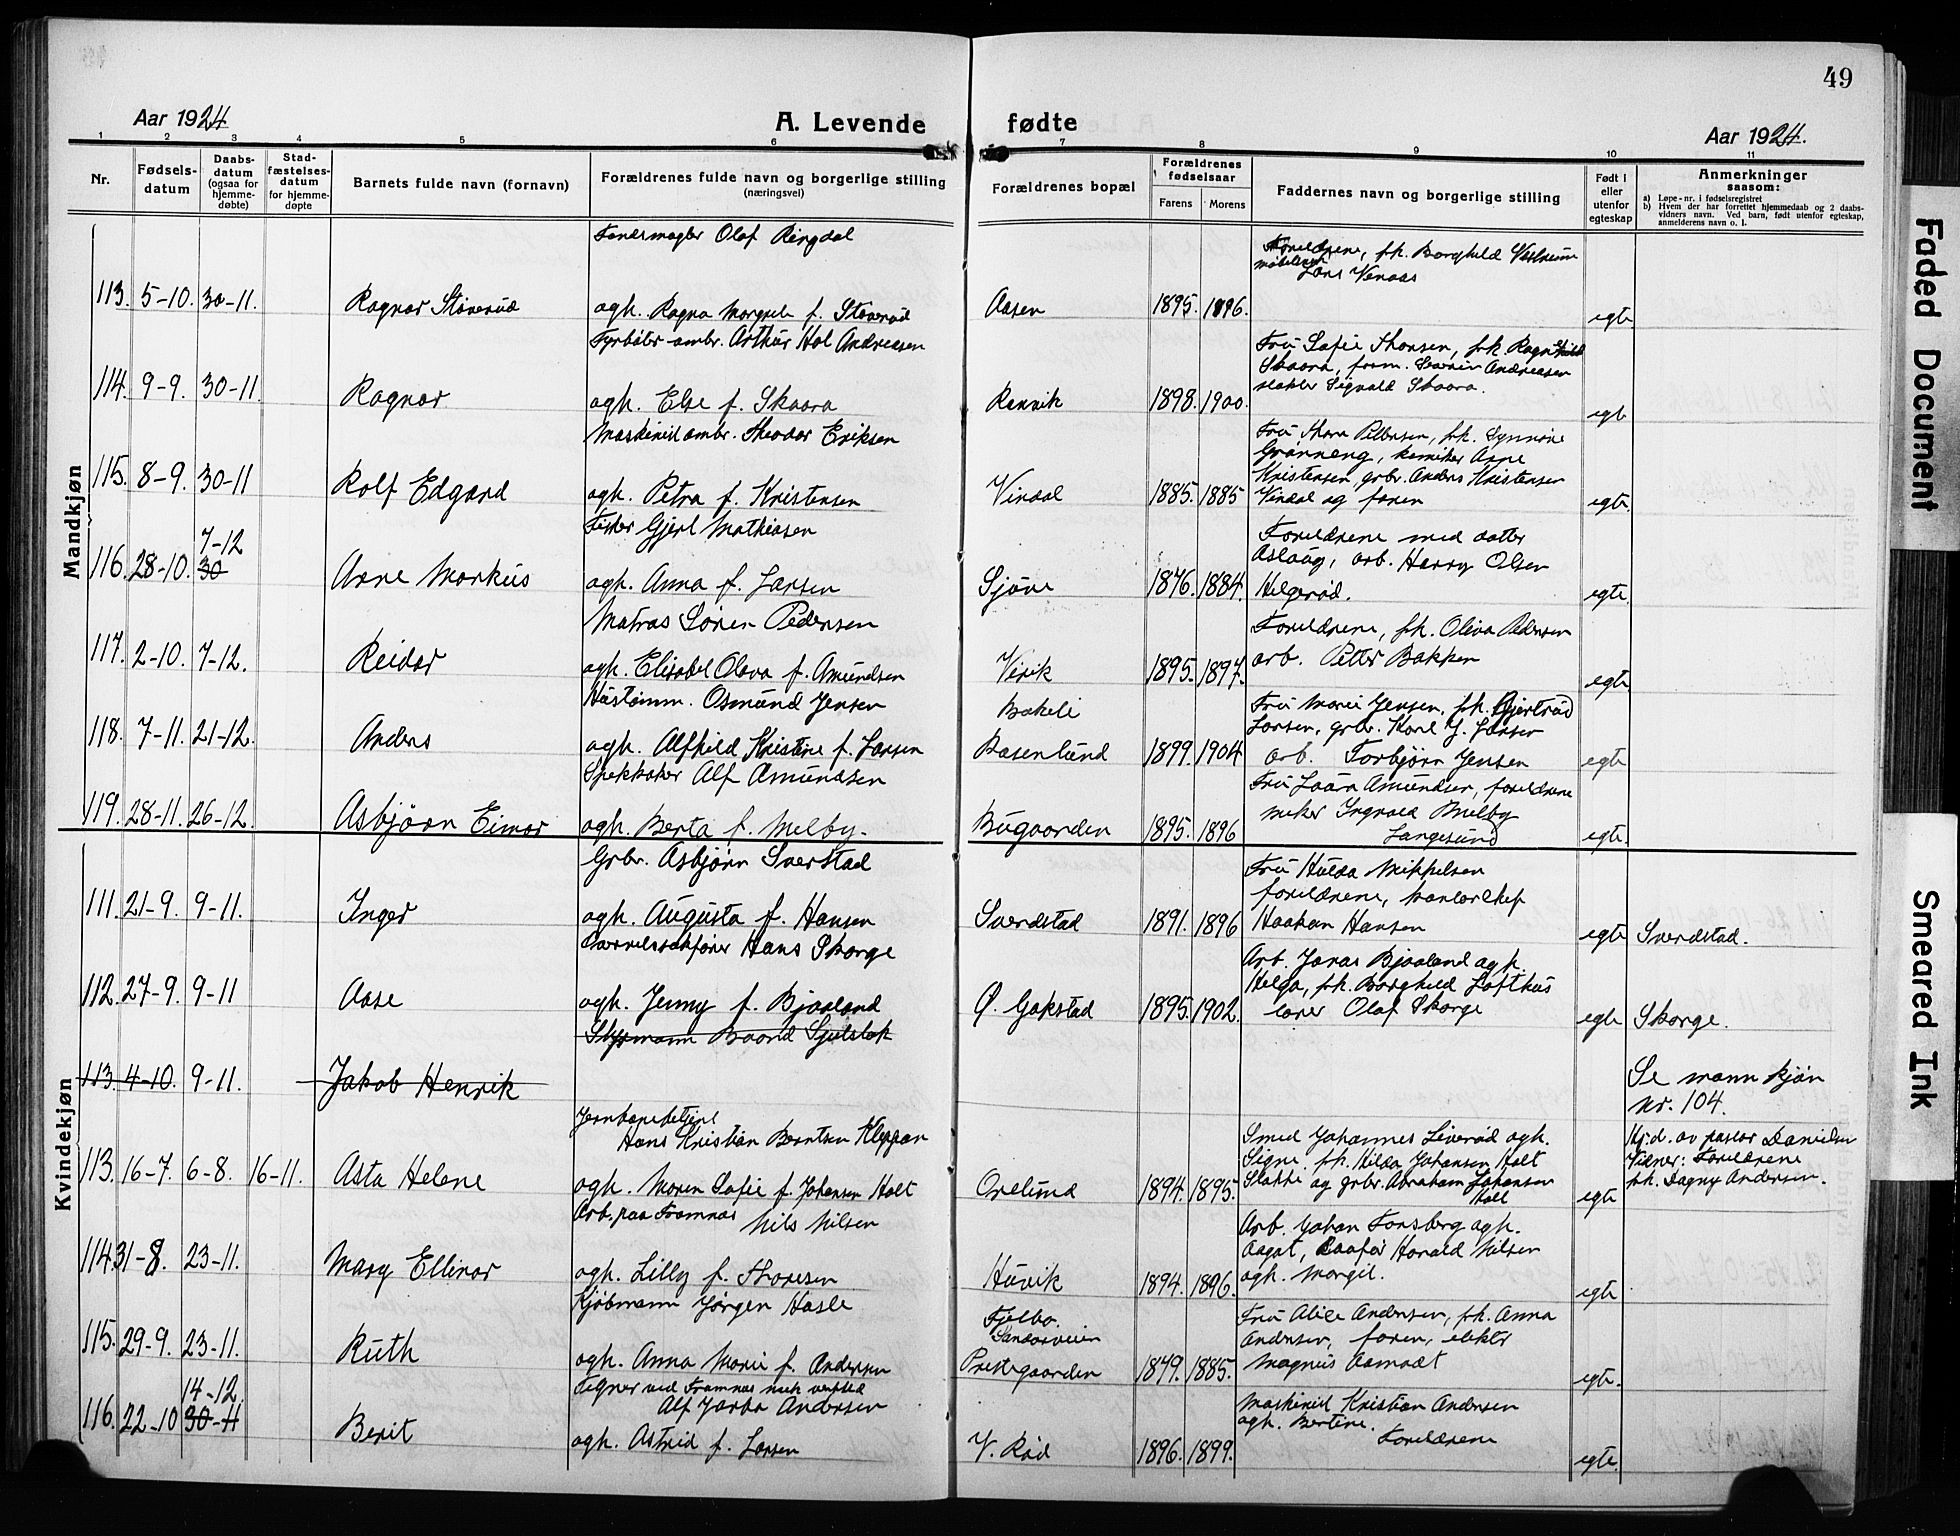 49
Aar 1924
A. Levende fødte
Aar 1924.
1 2 3 4 5 6 7 8 9 10 11
Nr.
Fødsels-
datum
Daabs-
datum
(ogsaa for
hjemme-
døbte)
Stad-
fæstelses-
datum
for hjemme-
døpte
Barnets fulde navn (fornavn)
Forældrenes fulde navn og borgerlige stilling
(næringsvei)
Forældrenes bopæl
Forældrenes
fødselsaar
Farens Morens
Faddernes navn og borgerlige stilling
Født i
eller
utenfor
egteskap
Anmerkninger
saasom:
a) Løpe-nr. i fødselsregistret
b) Hvem der har forrettet hjemmedaab og 2 daabs-
vidners navn. Ved barn, født utenfor egteskap,
anmelderens navn o. l.
Mandkjøn
Olaf Ringdal
Forældrene, frk. Borghild
Lars Venaas
113. 5-10. 30-11. Ragnar Støverud
ogh. Ragna Margrete f. Støverud
Aasen 1895. 1896. egte
Fyrbøter ombr. Arthur Hol Andreasen
Fru Sofie Thorsen, frk. Ragnhild
Skaara, Andreasen
Sigvald Skaara.
114. 9-9. 30-11. Ragnar
ogh. Else f. Skaara
Ranvik 1898. 1900. egte
Maskinist ombr. Theodor Eriksen
Fru Thora Pettersen, frk. Synnøve
Grønneng, Arne
Kristensen, grbr. Anders Kristensen
115. 8-9. 30-11 Rolf Edgard
ogh. Petra f. Kristensen
Vindal 1885. 1885 Vindal og faren egte.
Fisker Gjert Mathiasen
Forældrene med datter
Aslaug, arb. Harry Olsen
7-12
116. 28-10. 30 Arne Markus
ogh. Anna f. Larsen
Sjøve 1876. 1884. Helgerød. egte.
Matros Søren Pedersen
Forældrene, frk. Oliva Pedersen
117. 2-10. 7-12. Reidar
ogh. Elisabet Olava f. Amundsen
Virik 1895. 1897. arb. Petter Bakken egte
Hustømm. Osmund Jensen
Bakeli
Fru Marie Jensen, frk. Gjertrud
Larsen, grbr. Karl J. Larsen
118. 7-11. 21-12. Anders
ogh. Alfhild Kristine f. Larsen
Rosenlund 1899. 1904 arb. Torbjørn Jensen egte
Spekkoker Alf Amundsen
Fru Laura Amundsen, forældrene
Ingvald Melby
119. 28-11. 26-12. Asbjørn Eimar
ogh. Berta f. Melby.
Bugaarden 1895. 1896 Langesund egte.
Kvindekjøn
Grbr. Asbjørn Sverstad
Fru Hulda Mikkelsen
forældrene, kontorchef
111. 21-9. 9-11. Inger
ogh. Augusta f. Hansen
Sverdstad 1891. 1896 Haakon Hansen egte Sverdstad.
Hans Skorge
Arb. Jonas Bjaaland ogh.
Helga, frk. Borghild Lofthus
112. 27-9. 9-11 Aase
ogh. Jenny f. Bjaaland
Ø. Gokstad 1895. 1902. lærer Olaf Skorge egte Skorge.
Styrmann Baard
113. 4-10. 9-11. Jakob Henrik
Se mann kjøn
nr. 104.
Jernbanebetjent
Hans Kristian Berntsen Kleppan
Smed Johannes Liverød ogh.
Signe, frk. Hilda Johansen Holt
Hj.d. av pastor Danielsen
Vidner: Forældrene
frk. Dagny Andersen.
113. 16-7. 6-8. 16-11. Asta Helene
ogh. Maren Sofie f. Johansen Holt
Orelund 1894. 1895. Stokke og grbr. Abraham Johansen
Holt egte
Arb. paa Framnæs
Nils Nilsen
Arb. Johan Fonsberg ogh.
Aagot, Harald Nilsen
114. 31-8. 23-11. Mary Ellinor
ogh. Lilly f. Thoresen
Huvik 1894. 1896. ogh. Margit. egte
Kjøbmann Jørgen Hasle
Fjelbo.
Landeveien
Fru Alice Andersen, frk. Anna
Andersen, faren, elektr
115. 29-9. 23-11. Ruth
ogh. Anna Marie f. Andersen
Prestegaarden 1879. 1885. Magnus Aamodt egte.
Tegner ved Framnæs mek verksted
Alf Jarbo Andersen
Maskinist Kristian Andersen
ogh. Bertine.
14-12.
116. 22-10 30-11 Berit
ogh. Astrid f. Larsen
V. Rød 1896. 1899. Forældrene egte.
Faded Document
Smeared Ink